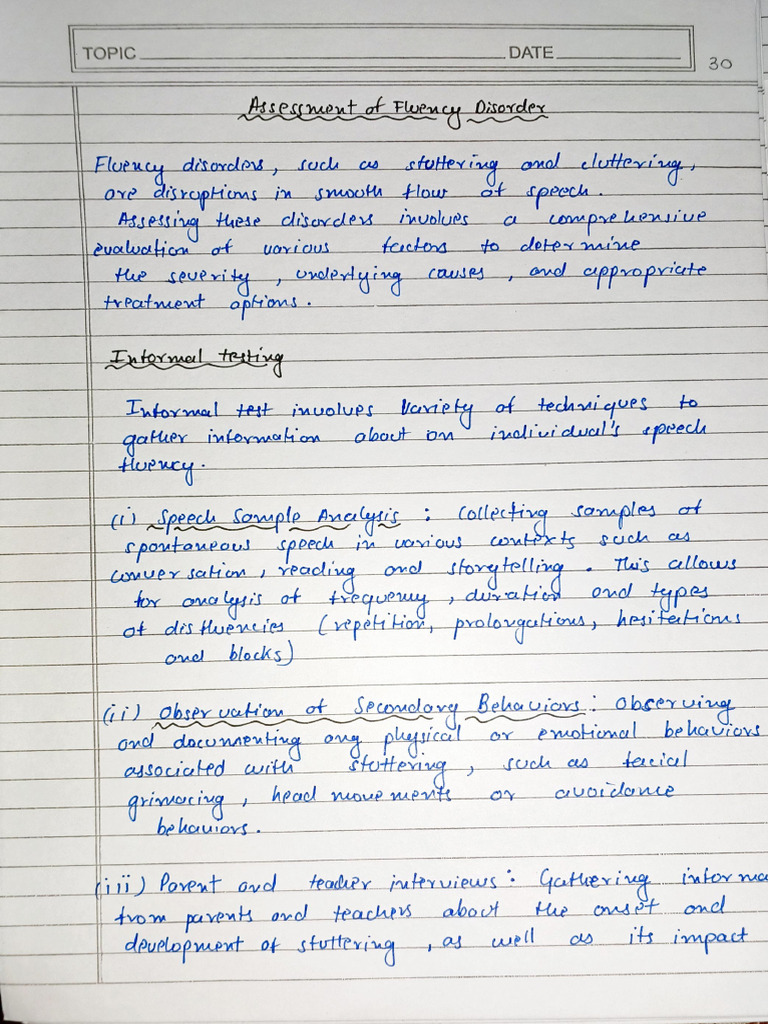 TOPIC DATE
30
Assessment of Fluency Disorder
Fluency disorders, such as stuttering and cluttering,
are disruptions in smooth flow of speech.
Assessing these disorders involves a comprehensive
evaluation of various factors to determine
the severity, underlying causes, and appropriate
treatment options.
Informal testing
Informal test involves Variety of techniques to
gather information about an individual's speech
fluency.
(i) Speech Sample Analysis : Collecting samples of
spontaneous speech in various contexts such as
conversation, reading and storytelling. This allows
for analysis of frequency, duration and types
of disfluencies (repetition, prolongations, hesitations
and blocks)
(ii) Observation of Secondary Behaviors : Observing
and documenting any physical or emotional behaviors
associated with stuttering, such as facial
grimacing, head movements or avoidance
behaviors.
(iii) Parent and teacher interviews : Gathering informa
from parents and teachers about the onset and
development of stuttering, as well as its impact